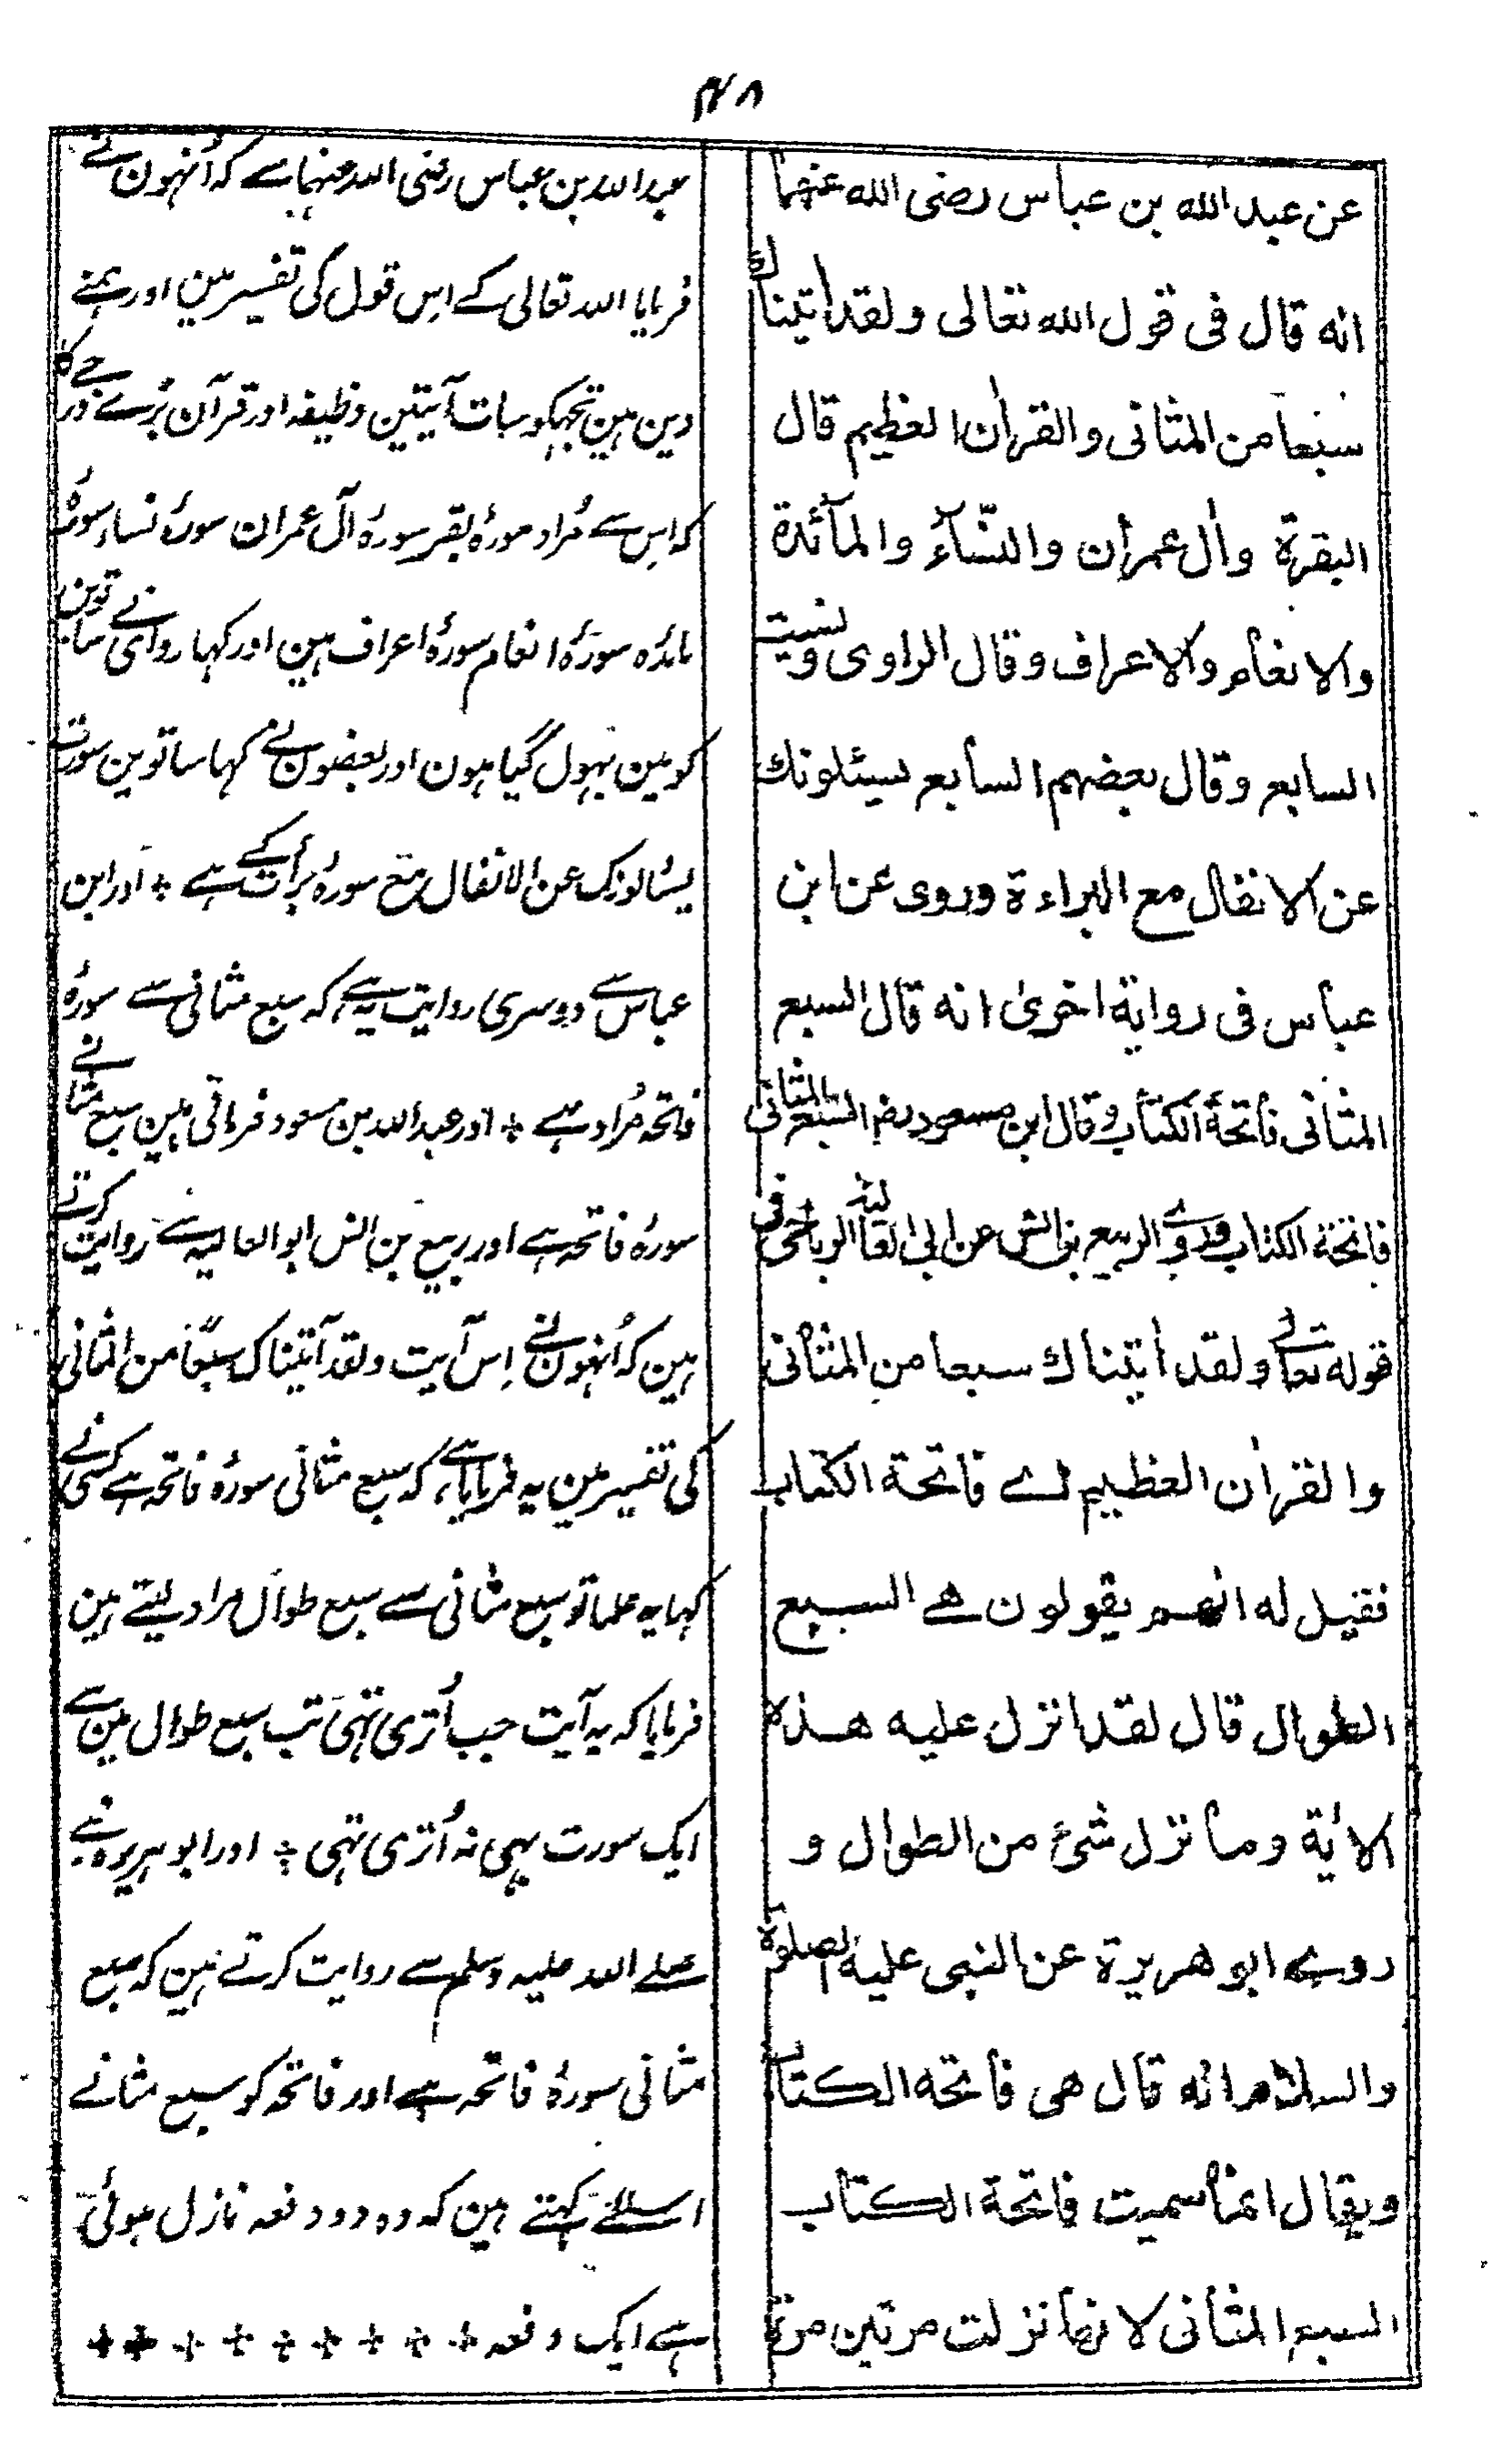 ۴۸
عن عبد الله بن عباس رضی الله عنهما
انه قال فی قول الله تعالی ولقد اٰتیناك
سبعا من المثانی والقراٰن العظیم قال
البقرة واٰل عمرٰن والنّسآء والمآئدة
والانعام والاعراف وقال الراوی ونسیت
السابع وقال بعضهم السابع یسئلونك
عن الانفال مع البراءة وروی عن ابن
عباس فی روایة اخریٰ انه قال السبع
المثانی فاتحة الکتاب وقال ابن مسعود رضـ السبع المثانی
فاتحة الکتاب وروے الربیع بن انس عن ابی العالیة الریاحی فی
قوله تعالے ولقد اٰتیناك سبعا من المثانی
والقراٰن العظیم اے فاتحة الکتاب
فقیل له انهم یقولون هے السبع
الطوال قال لقد انزل علیه هذه
الاٰیة وما نزل شیٔ من الطوال و
روے ابو هریرة عن النبی علیه الصلوة
والسلام انه قال هی فاتحة الکتاب
ویقال انما سمیت فاتحة الکتاب
السبع المثانی لانها نزلت مرتین مرة
عبد اللہ بن عباس رضی اللہ عنہما سے کہ اُنہون نے
فرمایا اللہ تعالی کے اِس قول کی تفسیر مین اور ہمنے
دین ہین تجہکو سات آیتین وظیفہ اور قرآن بڑے درجے کا
کہ اِس سے مُراد سورۂ بقر سورۂ آل عمران سورۂ نساء سورۂ
مائدہ سورۂ انعام سورۂ اعراف ہین اور کہا راوی نے ساتوین
کو مین بہول گیا ہون اور بعضون نے کہا ساتوین سورت
یسألونک عن الانفال مع سورۂ برأت کے ہے ÷ اور ابن
عباس سے دوسری روایت یہ ہے کہ سبع مثانی سے سورۂ
فاتحہ مُراد ہے ÷ اور عبد اللہ بن مسعود فرماتی ہین سبع مثانے
سورۂ فاتحہ ہے اور ربیع بن انس ابو العالیہ سے روایت کرتے
ہین کہ اُنہون نے اِس آیت ولقد آتیناک سبعًا من المثانی
کی تفسیر مین یہ فرمایا ہے کہ سبع مثانی سورۂ فاتحہ ہے کسی نے
کہا یہ علما تو سبع مثانی سے سبع طوال مراد لیتے ہین
فرمایا کہ یہ آیت جب اُتری تہی تب سبع طوال مین سے
ایک سورت بہی نہ اُتری تہی ÷ اور ابو ہریرہ نبے
صلے اللہ علیہ وسلم سے روایت کرتے ہین کہ سبع
مثانی سورۂ فاتحہ ہے اور فاتحہ کو سبع مثانے
اسلئے کہتے ہین کہ وہ دو دفعہ نازل ہوئی
ہے ایک دفعہ ÷ ÷ ÷ ÷ ÷ ÷ ÷ ÷ ÷